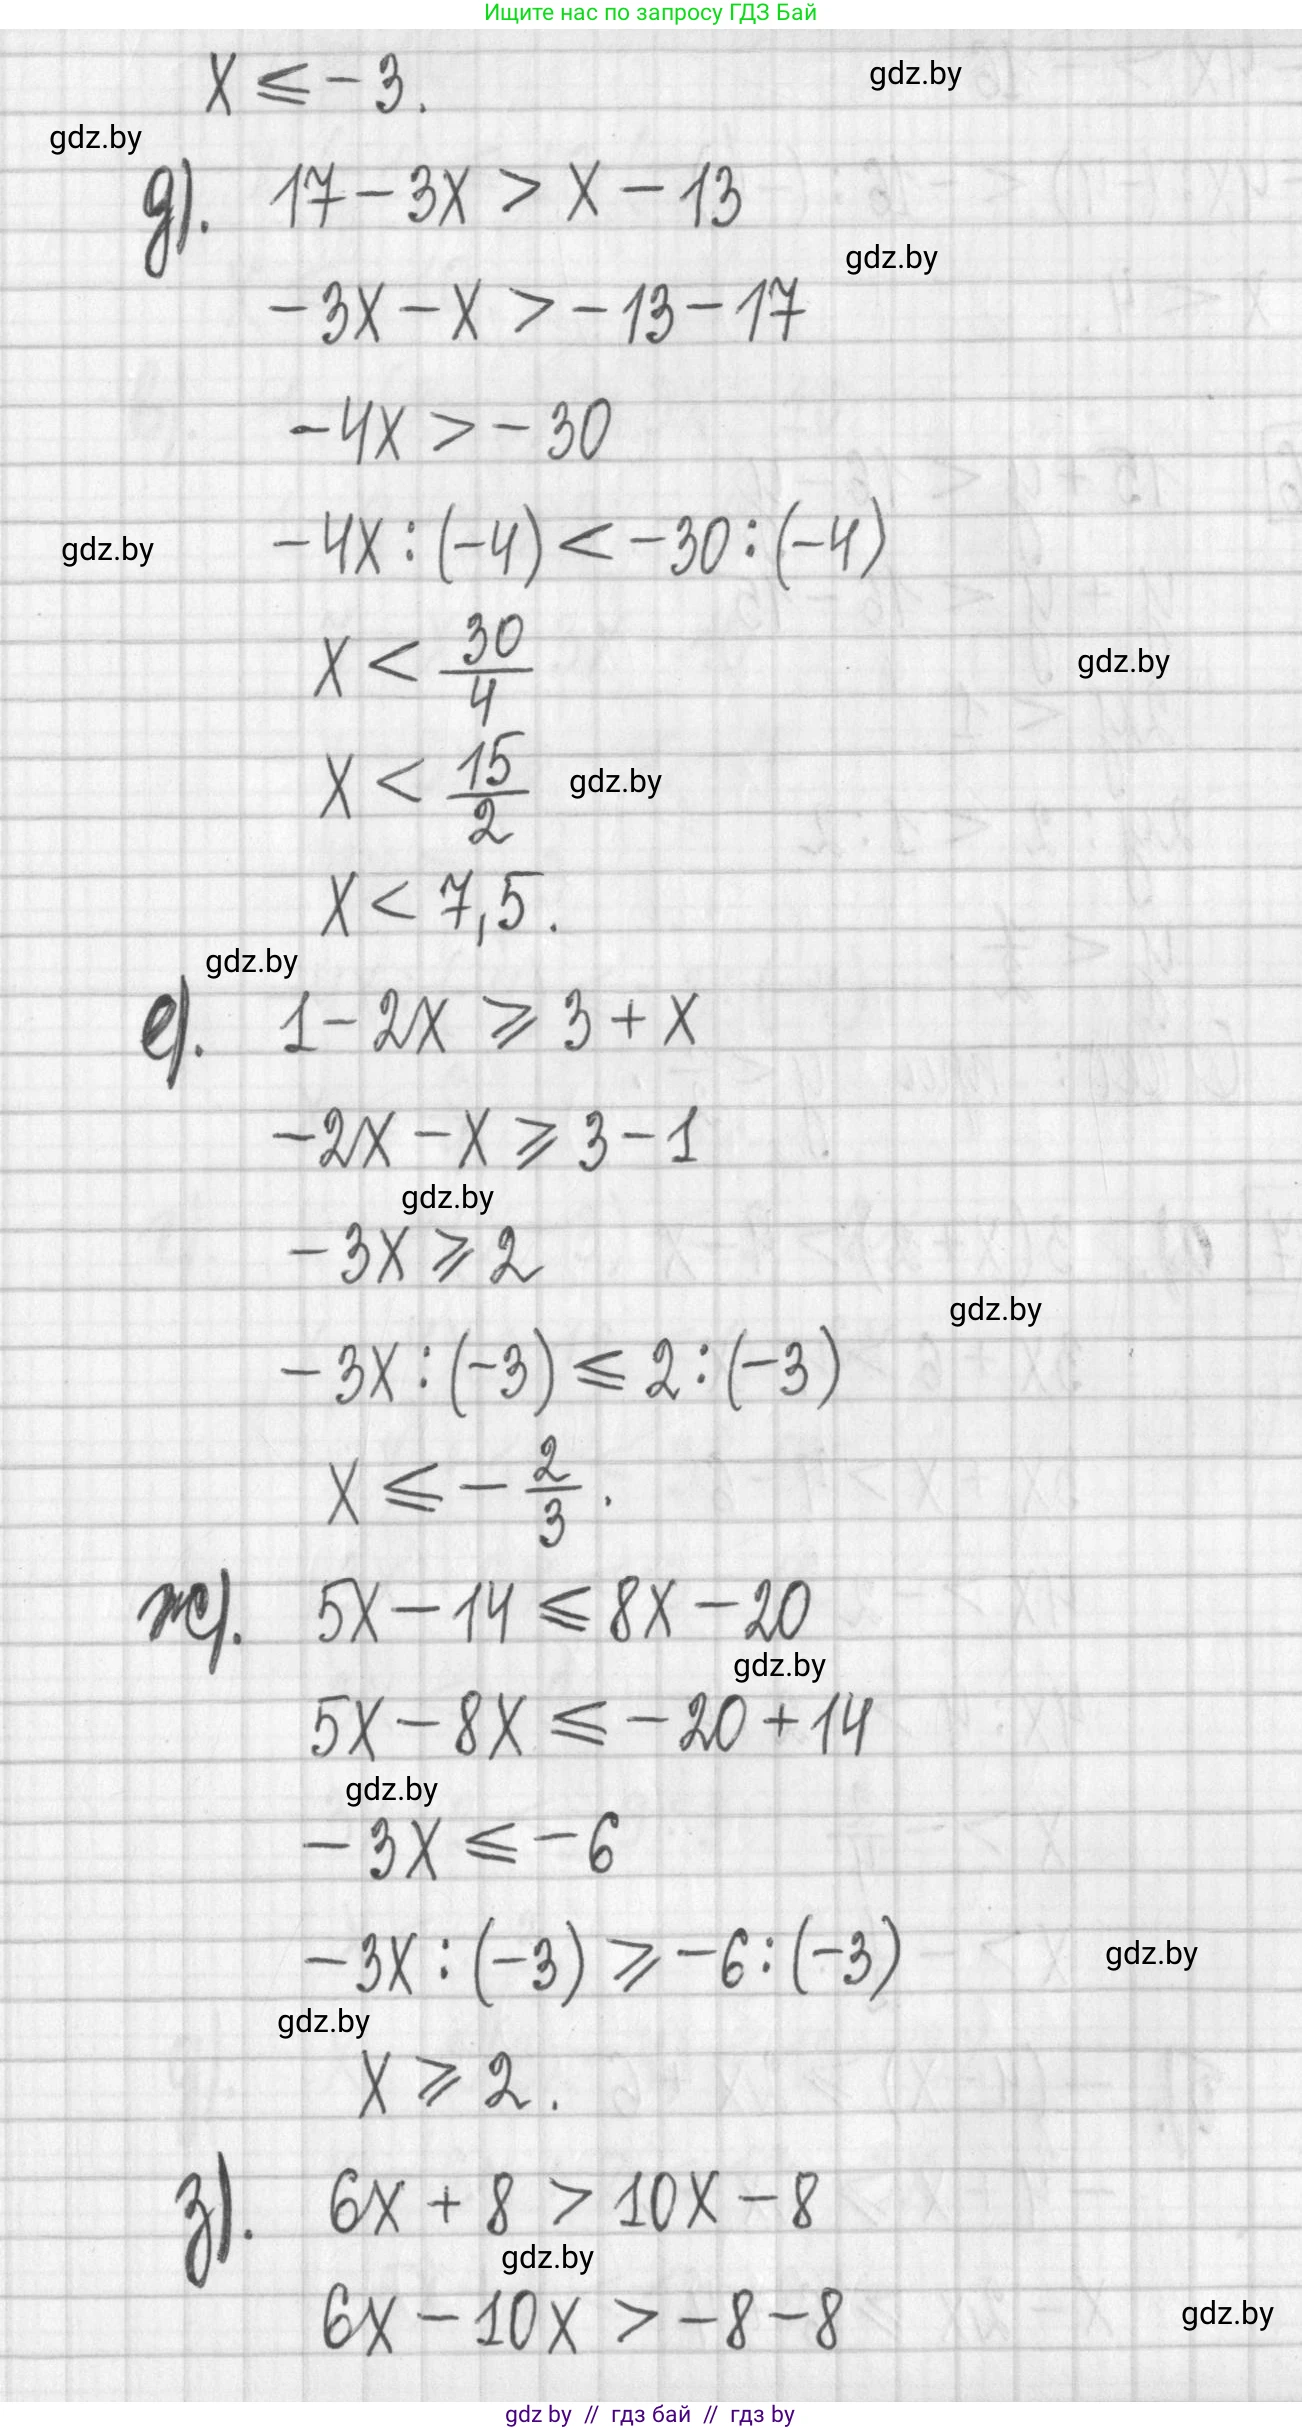 Ищите нас по запросу ГДЗ Бай
x ⩽ -3.
gdz.by
gdz.by
д). 17 - 3x > x - 13
gdz.by
-3x - x > -13 - 17
-4x > -30
-4x : (-4) < -30 : (-4)
gdz.by
x < 30/4
gdz.by
x < 15/2
gdz.by
x < 7,5.
gdz.by
е). 1 - 2x ⩾ 3 + x
-2x - x ⩾ 3 - 1
gdz.by
-3x ⩾ 2
gdz.by
-3x : (-3) ⩽ 2 : (-3)
x ⩽ - 2/3.
ж). 5x - 14 ⩽ 8x - 20
gdz.by
5x - 8x ⩽ -20 + 14
gdz.by
-3x ⩽ -6
-3x : (-3) ⩾ -6 : (-3)
gdz.by
gdz.by
x ⩾ 2.
з). 6x + 8 > 10x - 8
gdz.by
6x - 10x > -8 - 8
gdz.by
gdz by // гдз бай // гдз by